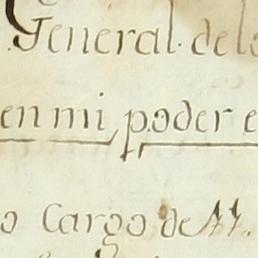 General. de lo
en mi, poder e
o Cargo de M.